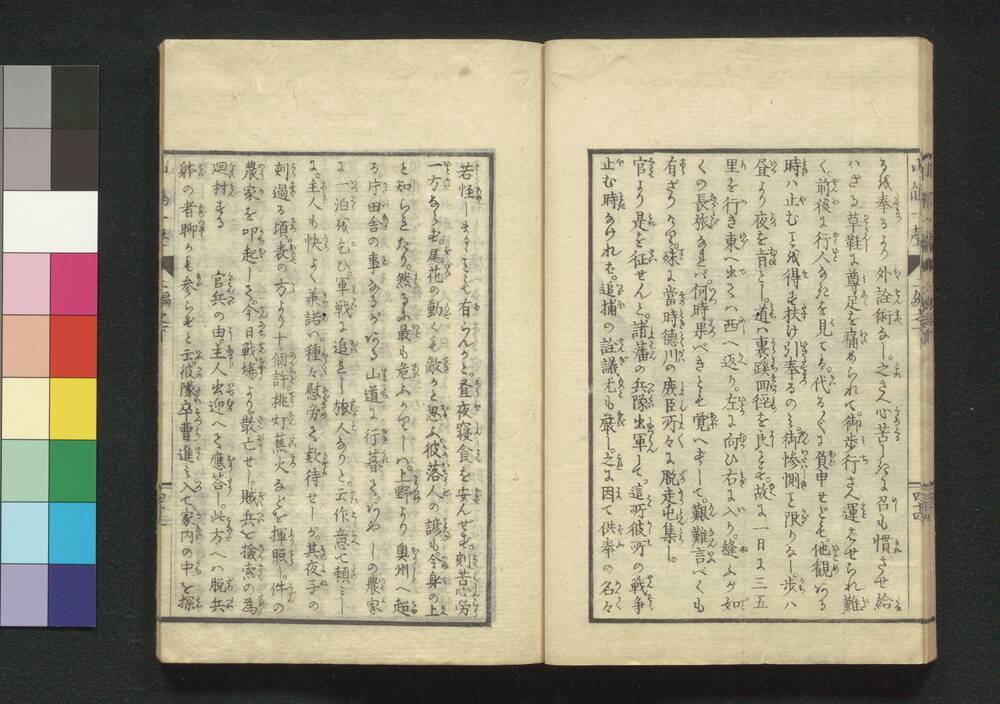 る我奉るより外詮術なし。之さへ心苦しきに召も慣させ給
ハざる草鞋に尊足を痛められて、御歩行さへ運ばせられ難
く、前後に行人あたを見てる。代る〴〵に負申せども。他観
時ハ止む事を得ず扶け引奉るのミ。御惨惻と限りなし。歩ハ
昼より夜を旨とし。道ハ裏蹊四径を良とせ。故に一日に三五
里を行き東へ出てハ西へ返り。左に向ひ右に入り。縫ふが如
くの長旅なれバ。何時果べきとも覚へずして。艱難言べくも
有ざりける。殊に當時徳川の廃臣所々に脱走屯集し。
官より是を征せんと。諸藩の兵隊出軍して。這所彼所の戦争
止む時なけれバ。追捕の詮議尤も厳し。之に因て供奉の名々
若怪しまるゝ事も有らんかと。昼夜寝食を安んぜず。刻苦心労
一方ならず。尾花の動くも敵かと思ふ。彼落人の諺も今身の上
と知られたり。然るに最も危ふかりしハ。上野より奥州へ超
る。片田舎の事なるが。山道に行暮て。しの農家
に一泊を乞ひ。軍戦に追れし旅人なりと。云作意て頼ミし
に。主人も快よく兼諾ハ種々慰労なく欵待せしが。其夜子の
刻過る頃表の方より十個許挑灯蕉火などを揮照し。件の
農家を叩起して。今日戦場より散亡せし。賊兵を捜索の為。
廻村する　官兵の由。主人出迎へて應答し。此方へハ脱兵
躰の者聊かも参らずと云。彼隊卒曹進ミ入て。家内の中を探